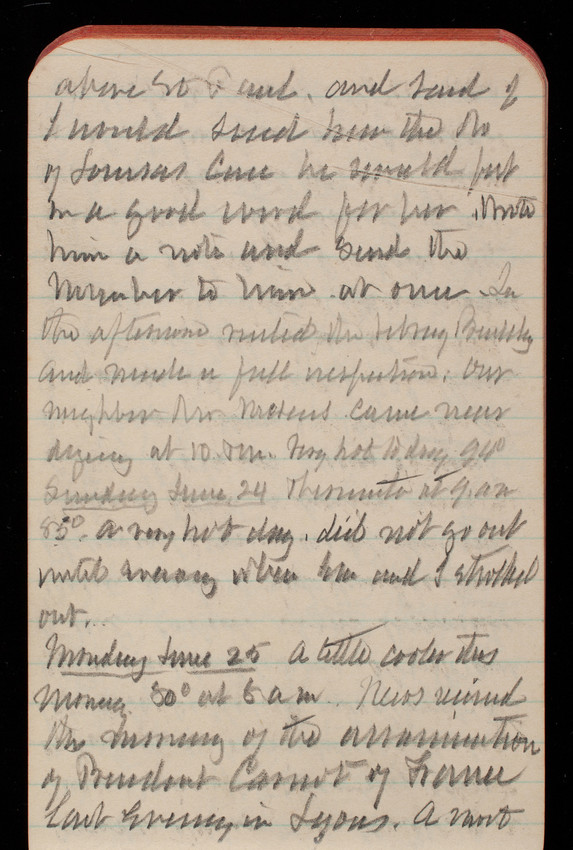 above St Paul. and said if
I would send him the No
of Louisas Case he would put
in a good word for her. Wrote
him a note and send the
Number to him at once. In
the afternoon visited the Library Building
and made a full inspection. Our
neighbor Mrs came near
dying at 10. P.m. Very hot to day 94°
Sunday June 24 Thermometer at 9. a m
85°. a very hot day. did not go out
until evening when Em and I strolled
out.
Monday June 25 A little cooler this
Morning 80° at 8 a m. News received
this morning of the assassination
of President Carnot of France
last evening in Lyons. A most